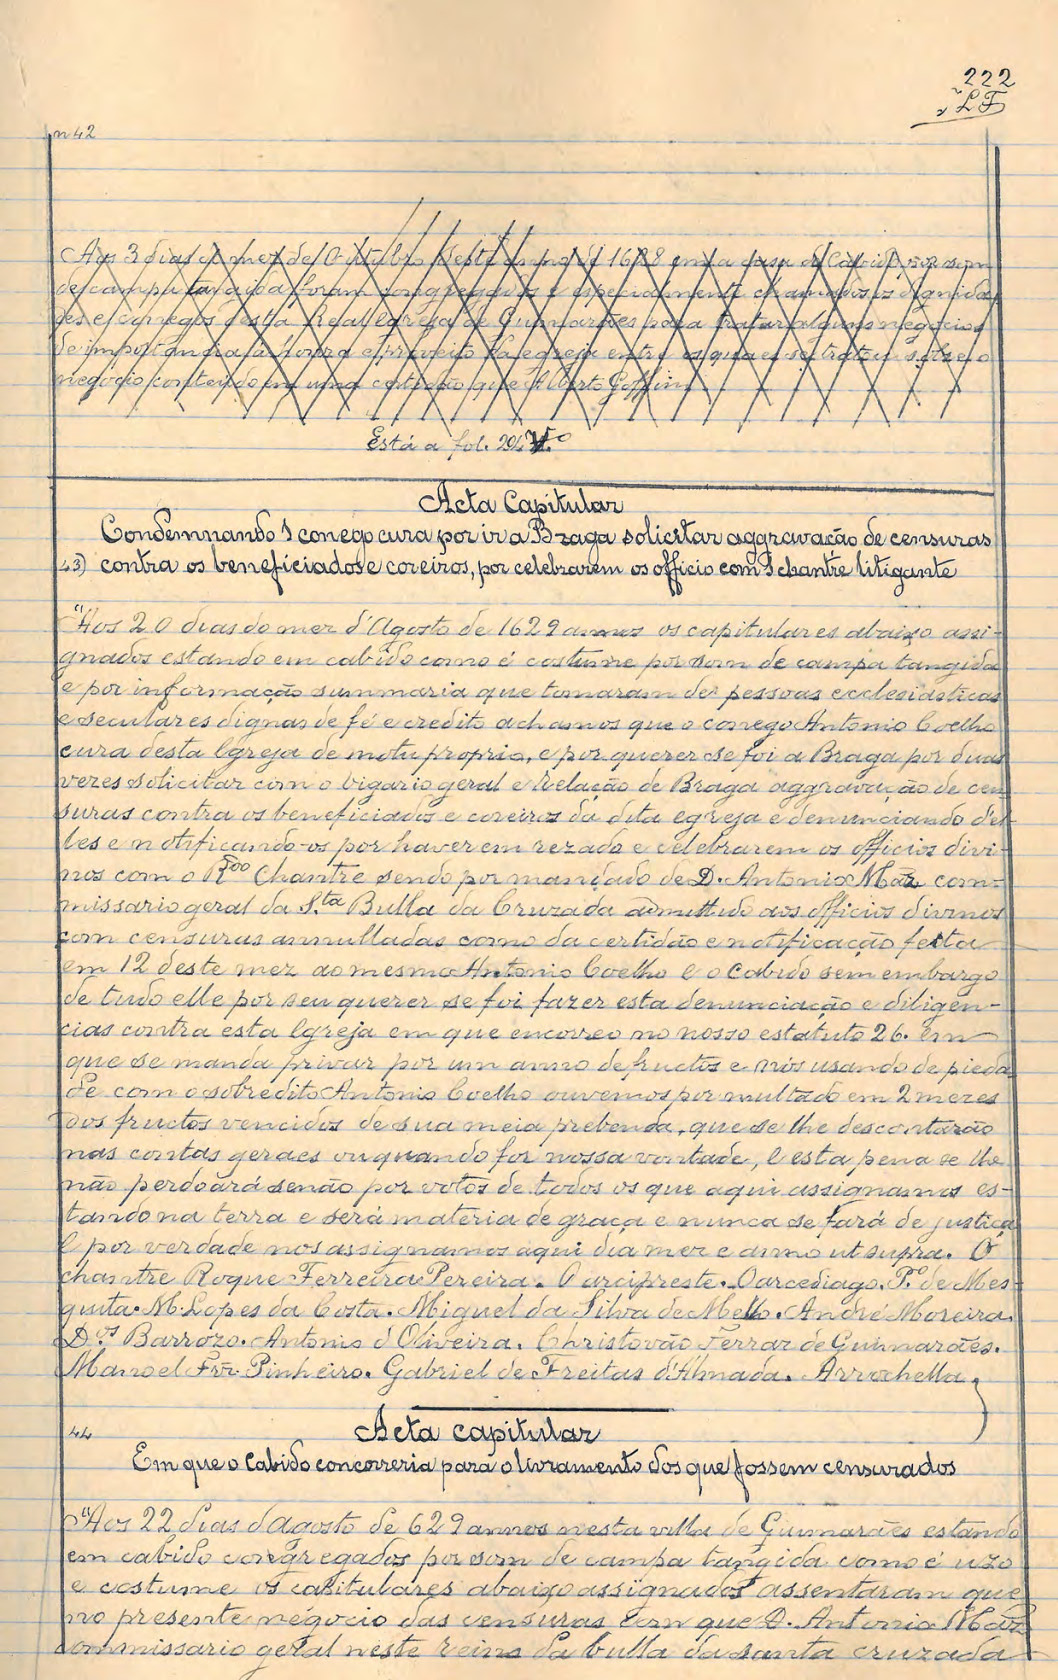 222
LF
n 42
Aos 3 dias do mez de Outubro deste anno de 1628 em a casa do Cabido por som
de campa tangida foram congregados e especialmente chamados os dignida-
des e conegos desta Real Egreja de Guimarães para tratar alguns negocios
de importancia á honra e proveito da egreja entre os quaes se tratou sobre o
negocio conteudo em uma certidão que Alberto
Está a fol. 204
Acta Capitular
Condemnando 1 conego cura por ir a Braga solicitar aggravação de censuras
43) contra os beneficiados e coreiros, por celebrarem os officio com 1 chantre litigante
"Aos 20 dias do mez d'Agosto de 1629 annos os capitulares abaixo assi-
gnados estando em cabido como é costume por som de campa tangida
e por informação summaria que tomaram de pessoas ecclesiasticas
e seculares dignas de fé e credito achamos que o conego Antonio Coelho
cura desta Igreja de motu proprio, e por querer se foi a Braga por duas
vezes solicitar com o vigario geral e Relação de Braga aggravação de cen
suras contra os beneficiados e coreiros da dita egreja e denunciando d'el-
les e notificando-os por haverem rezado e celebrarem os officios divi-
nos com o Rdo Chantre sendo por mandado de D. Antonio Maz com-
missario geral da S.ta Bulla da Cruzada admittido aos officios divinos
com censuras annulladas como da certidão e notificação feita
em 12 deste mez ao mesmo Antonio Coelho e o Cabido sem embargo
de tudo elle por seu querer se foi fazer esta denunciação e diligen-
cias contra esta Igreja em que encorreo no nosso estatuto 26. em
que se manda privar por um anno de fructos e nós usando de pieda
de com o sobredito Antonio Coelho ouvemos por multado em 2 mezes
dos fructos vencidos de sua meia prebenda, que se lhe descontarão
nas contas geraes ou quando for nossa vontade, e esta pena se lhe
não perdoará senão por votos de todos os que aqui assignamos es-
tando na terra e será materia de graça e nunca se fará de justiça
E por verdade nos assignamos aqui dia mez e anno ut supra. O
chantre Roque Ferreira Pereira. O arcipreste. O arcediago. P.o de Mes-
quita. M. Lopes da Costa. Miguel da Silva de Mello. André Moreira.
D.os Barrozo. Antonio d'Oliveira. Christovão Ferraz de Guimarães.
Manoel Frz Pinheiro. Gabriel de Freitas d'Almada. Arrochella.
44 Acta capitular
Em que o Cabido concorreria para o livramento dos que fossem censurados
"Aos 22 dias d'Agosto de 629 annos nesta villa de Guimarães estando
em cabido congregados por som de campa tangida como é uzo
e costume os capitulares abaixo assignados assentaram que
no presente negocio das censuras com que D. Antonio Maz
commissario geral neste reino da bulla da santa cruzada